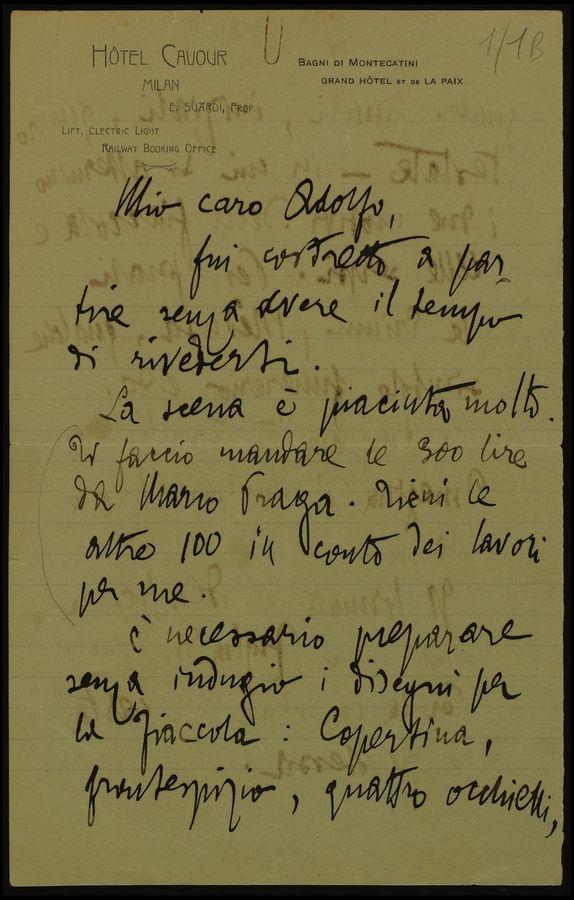 HÔTEL CAVOUR
MILAN
E. SUARDI, PROP.
LIFT, ELECTRIC LIGHT
RAILWAY BOOKING OFFICE
BAGNI DI MONTECATINI
GRAND HÔTEL ET DE LA PAIX
1/1B
Mio caro Adolfo,
fui costretto a par
tire senza avere il tempo
di rivederti.
La scena è piaciuta molto.
Ti faccio mandare le 300 lire
da Marco Praga. Tieni le
altre 100 in conto dei lavori
per me.
È necessario preparare
senza indugio i disegni per
la Fiaccola: Copertina,
frontespizio, quattro occhielli,